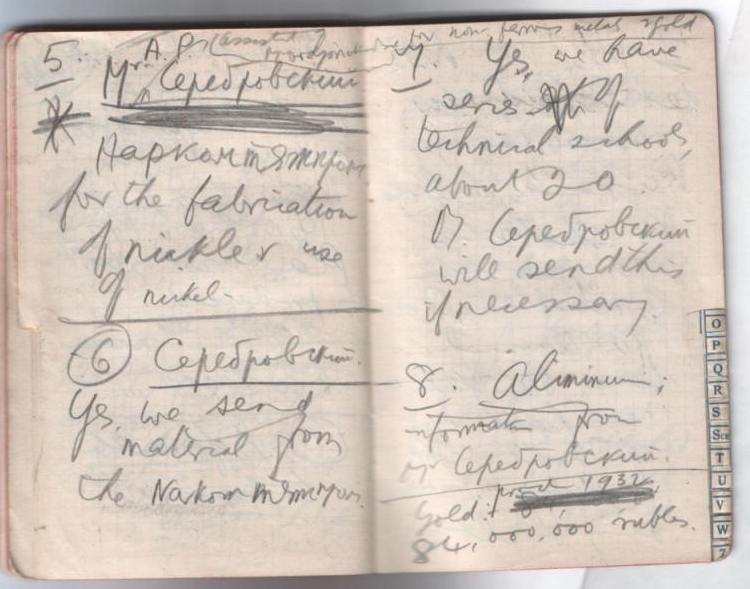 5. A. P. (assistant of
Mr. Серебровский
for the fabrication
of nickle & use
of nickel.
6 Серебровский.
Yes, we send
material from
the
for non ferrous metals & gold
7. Yes, we have
series of
technical schools,
about 20.
Серебровский
will send this
if necessary.
8. Aliminium;
from
Mr Серебровский.
prod 1932
Gold:
84,000,000 rubles.
O
P
Q
R
S
Sch
T
U
V
W
Z